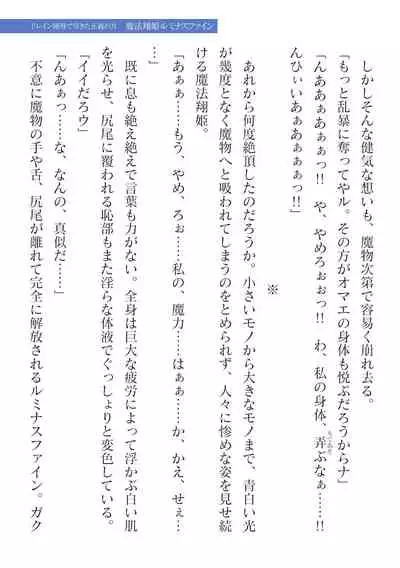 ドレイン陵辱で尽きた正義の力　魔法翔姫ルミナスファイン
しかしそんな健気な想いも、魔物次第で容易く崩れ去る。
「もっと乱暴に奪ってやル。その方がオマエの身体も悦ぶだろうからナ」
「んあああぁあぁぁっ!!　や、やめろぉぉっ!!　わ、私の身体、弄ぶなぁ……!!
んひぃいあぁあぁぁぁっ!!」
※
あれから何度絶頂したのだろうか。小さいモノから大きなモノまで、青白い光
が幾度となく魔物へと吸われてしまうのをとめられず、人々に惨めな姿を見せ続
ける魔法翔姫。
「あぁぁ……もう、やめ、ろぉ……私の、魔力……はぁぁ……か、かえ、せぇ…
…」
既に息も絶え絶えで言葉も力がない。全身は巨大な疲労によって浮かぶ白い肌
を光らせ、尻尾に覆われる恥部もまた淫らな体液でぐっしょりと変色している。
「イイだろウ」
「んあぁっ……な、なんの、真似だ……」
不意に魔物の手や舌、尻尾が離れて完全に解放されるルミナスファイン。ガク